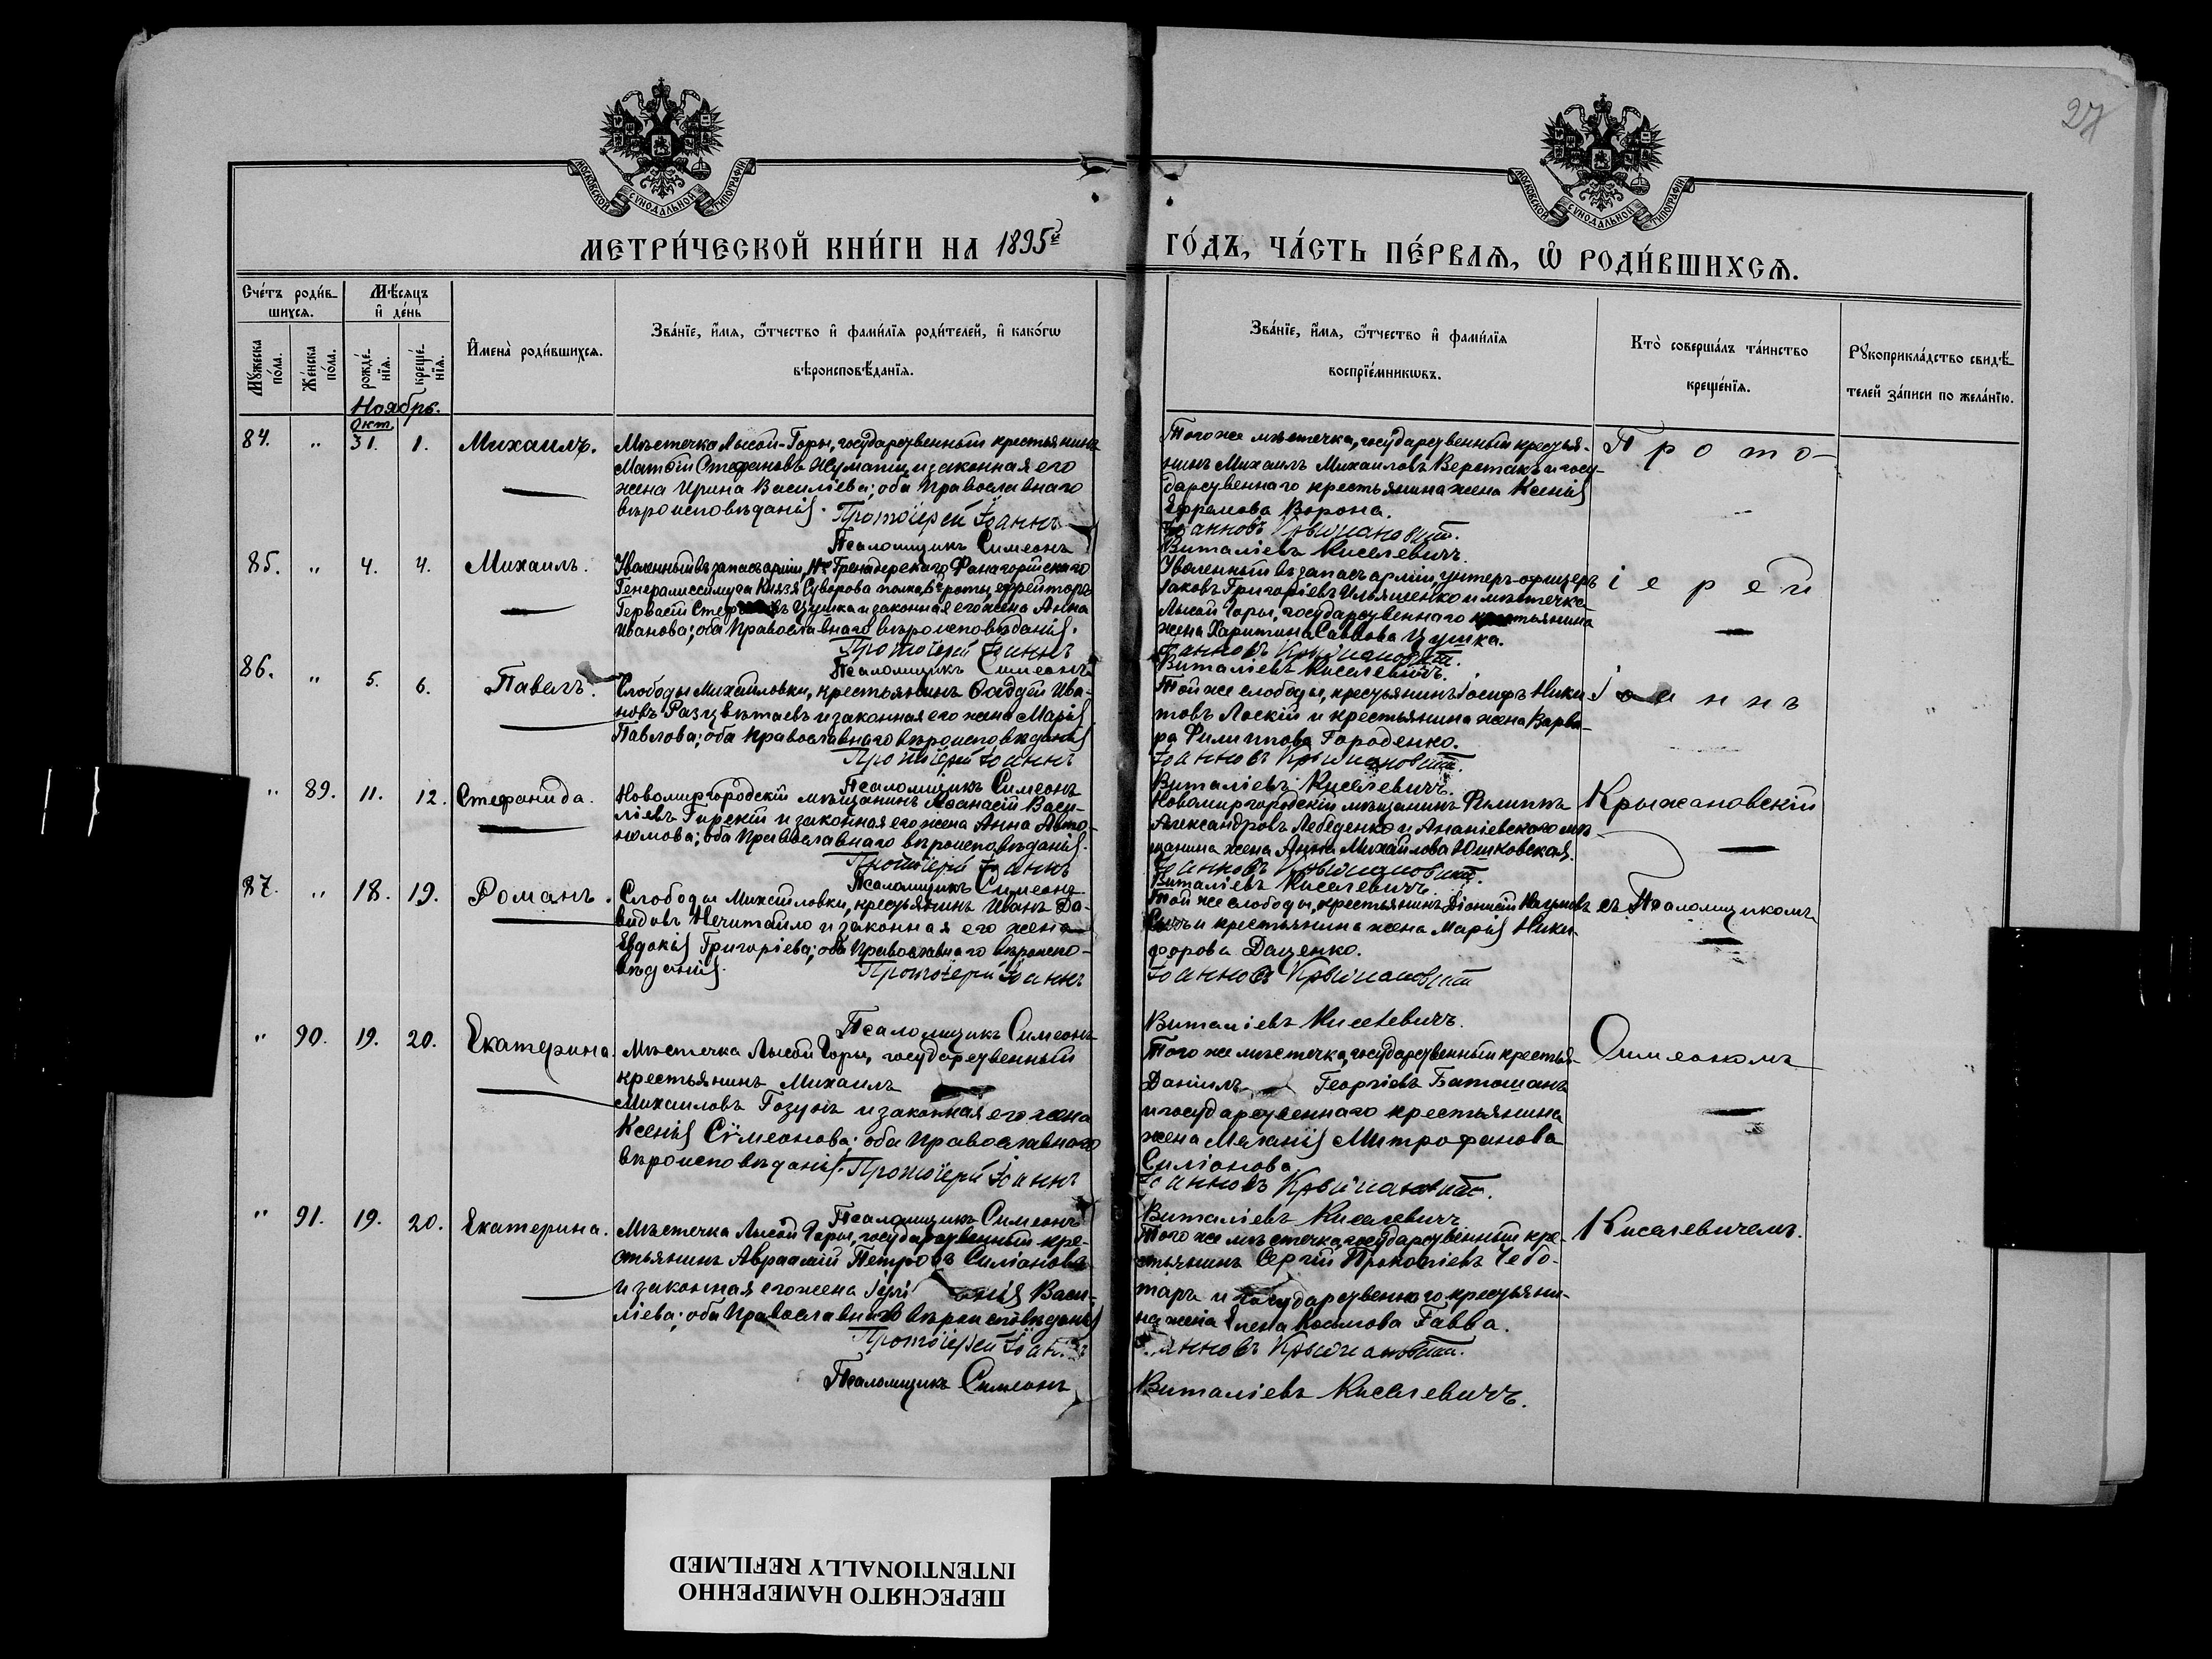 27
МОСКОВСКОЙ СУНОДАЛЬНОЙ ТИПОГРАФІИ
МОСКОВСКОЙ СУНОДАЛЬНОЙ ТИПОГРАФІИ
МЕТРИ́ЧЕСКОЙ КНИ́ГИ НА 1895й
ГО́ДЪ, ЧА́СТЬ ПЕ́РВАѦ, Ѡ РОДИ́ВШИХСѦ.
Сче́тъ роди́в-
шихсѧ.
Мѣ́сѧцъ
и де́нь
Мꙋ́жеска по́ла.
Же́нска по́ла.
рожде́-
нїѧ.
креще́-
нїѧ.
Имена̀ роди́вшихсѧ.
Зва́нїе, и́мѧ, ѻ́тчество и фами́лїѧ роди́телей, и како́гѡ
вѣроисповѣ́данїѧ.
Зва́нїе, и́мѧ, ѻ́тчество и фами́лїѧ
воспрїе́мникѡвъ.
Кто̀ соверша́лъ та́инство
креще́нїѧ.
Рꙋкоприкла́дство свидѣ́-
телей за́писи по жела́нїю.
Ноябрь.
Окт.
84. " 31. 1. Михаилъ.
Мѣстечка Лысой-Горы, государственный крестьянинъ
Матѳій Стефановъ и законная его
жена Ирина Василіева; оба Православнаго
вѣроисповѣданія. Протоіерей Іоаннъ
Псаломщикъ Симеонъ
Того же мѣстечка, государственный крестья-
нинъ Михаилъ Михаиловъ Верстакъ и госу-
дарственнаго крестьянина жена Ксенія
Ефремова Ворона.
Іоанновъ Крыжановскій.
Виталіевъ Киселевичъ.
Прото-
85. " 4. 4. Михаилъ.
Уволенный въ запасъ арміи, Гренадерскаго Фанагорійскаго
Генералиссимуса Князя Суворова полка, роты, ефрейторъ
Гервасій Цушка и законная его жена Анна
Иванова; оба Православнаго вѣроисповѣданія.
Протоіерей Іоаннъ
Псаломщикъ Симеонъ
Уволенный въ запасъ арміи, унтеръ-офицеръ
Іаковъ Григоріевъ Ильяшенко и мѣстечка
Лысой Горы, государственнаго крестьянина
жена Харитина Саввова Цушка.
Іоанновъ Крыжановскій.
Виталіевъ Киселевичъ.
іерей
86. " 5. 6. Павелъ.
Слободы Михайловки, крестьянинъ Ѳаддей Ива-
новъ Разцвѣтаевъ и законная его жена Марія
Павлова; оба Православнаго вѣроисповѣданія
Протоіерей Іоаннъ
Псаломщикъ Симеонъ
Той же слободы, крестьянинъ Іосифъ Ники-
товъ Лоскій и крестьянина жена Варва-
ра Филиппова Городенко.
Іоанновъ Крыжановскій.
Виталіевъ Киселевичъ.
Іоаннъ
" 89. 11. 12. Стефанида.
Новомиргородскій мѣщанинъ Аѳанасій Васи-
ліевъ Гирскій и законная его жена Анна Авто-
номова; оба Православнаго вѣроисповѣданія.
Протоіерей Іоаннъ
Псаломщикъ Симеонъ
Новомиргородскій мѣщанинъ Филиппъ
Александровъ Лебеденко и Ананіевскаго мѣ-
щанина жена Анна Михайлова Юшковская.
Іоанновъ Крыжановскій.
Виталіевъ Киселевичъ.
Крыжановскій
87. " 18. 19. Романъ.
Слободы Михайловки, крестьянинъ Иванъ Да-
видовъ Нечитайло и законная его жена
Евдокія Григоріева; оба Православнаго вѣроиспо-
вѣданія. Протоіерей Іоаннъ
Псаломщикъ Симеонъ
Той же слободы, крестьянинъ Діонисій Наумовъ
Сычъ и крестьянина жена Марія Ники-
форова Даценко.
Іоанновъ Крыжановскій
Виталіевъ Киселевичъ.
съ Псаломщикомъ
" 90. 19. 20. Екатерина.
Мѣстечка Лысой Горы, государственный
крестьянинъ Михаилъ
Михаиловъ Гозунъ и законная его жена
Ксенія Сѵмеонова; оба Православнаго
вѣроисповѣданія. Протоіерей Іоаннъ
Псаломщикъ Симеонъ
Того же мѣстечка, государственный крестья-
Даніилъ Георгіевъ Батошанъ
и государственнаго крестьянина
жена Меланія Митрофанова
Силіонова.
Іоанновъ Крыжановскій.
Виталіевъ Киселевичъ
Симеономъ
" 91. 19. 20. Екатерина.
Мѣстечка Лысой Горы, государственный кре-
стьянинъ Авраамій Петровъ Силіоновъ
и законная его жена Васи-
ліева; оба Православнаго вѣроисповѣданія
Протоіерей Іоаннъ
Псаломщикъ Симеонъ
Того же мѣстечка государственный кре-
стьянинъ Сергій Прокопіевъ Чебо-
таръ и государственнаго крестьяни-
на жена Елена Космова Гавва.
Іоанновъ Крыжановскій.
Виталіевъ Киселевичъ.
Киселевичемъ.
ПЕРЕСНЯТО НАМЕРЕННО
INTENTIONALLY REFILMED